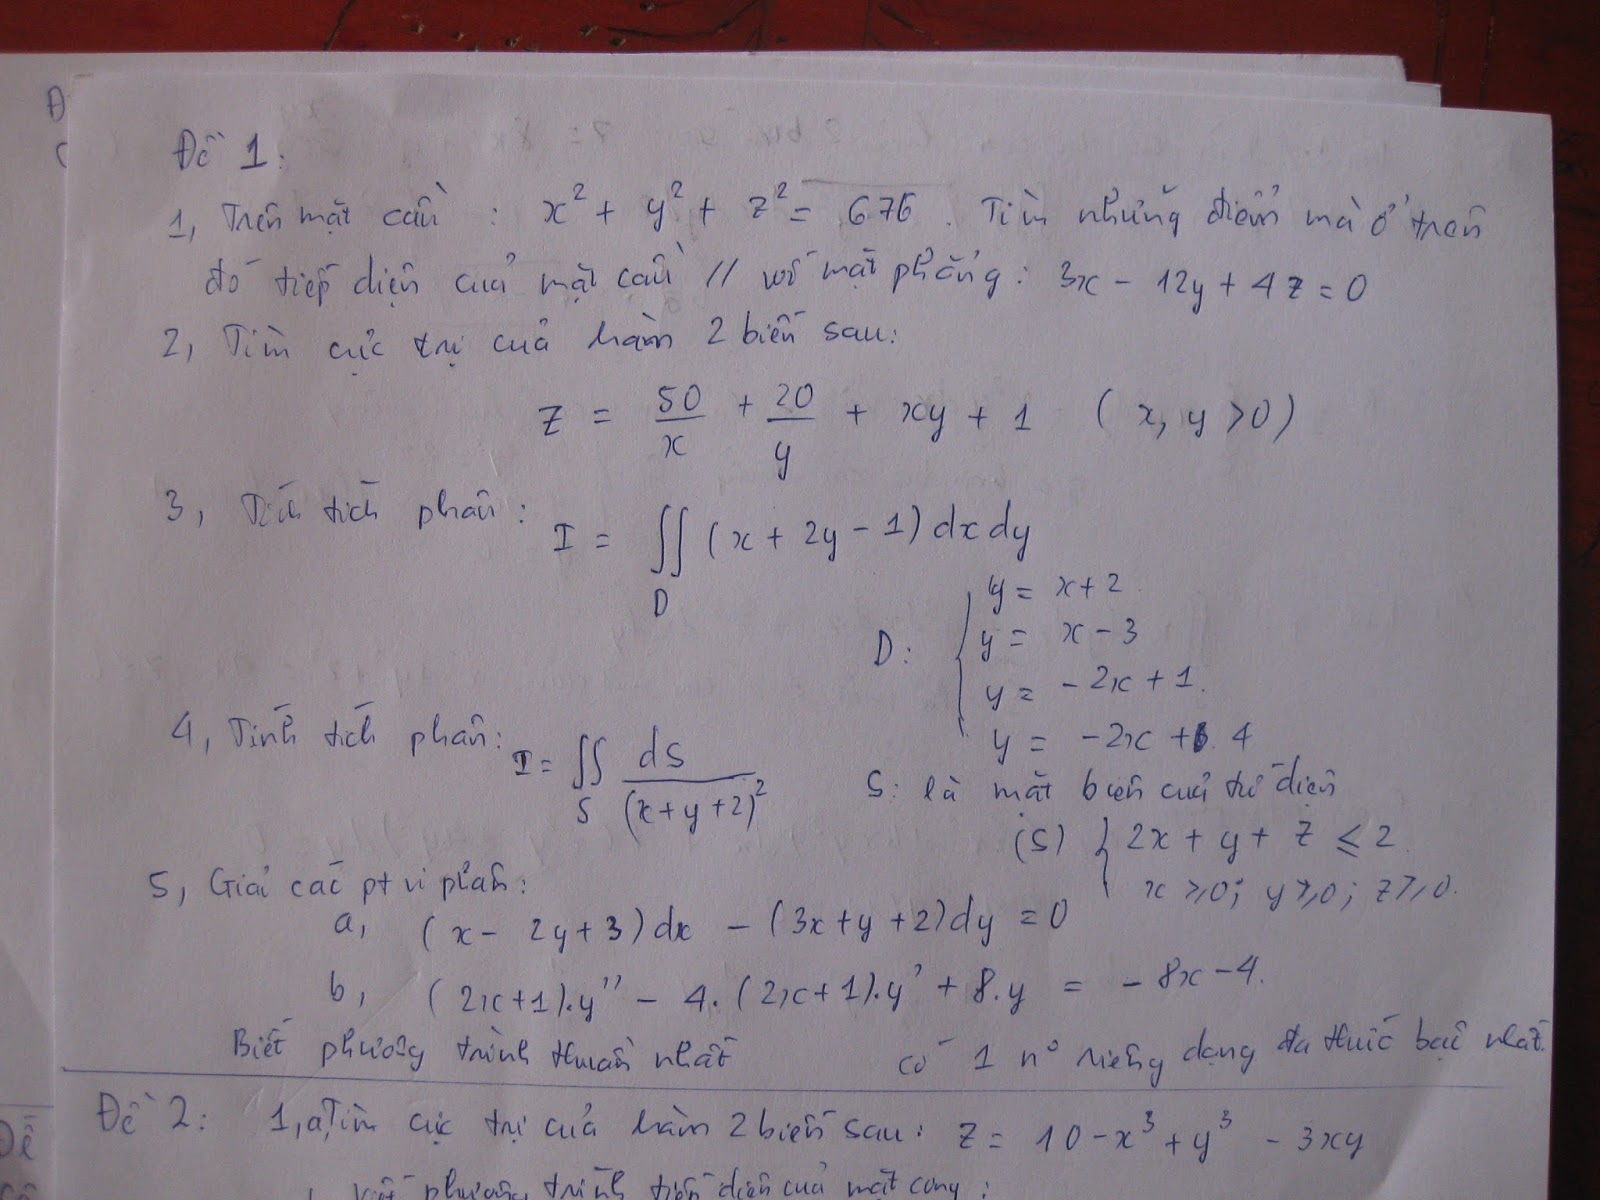 Đề 1:
1, Trên mặt cầu : x² + y² + z² = 676 . Tìm những điểm mà ở trên
đó tiếp diện của mặt cầu // với mặt phẳng : 3x - 12y + 4z = 0
2, Tìm cực trị của hàm 2 biến sau:
z = 50/x + 20/y + xy + 1 ( x, y > 0 )
3, Tính tích phân : I = ∬_D (x + 2y - 1) dx dy
D: { y = x + 2
y = x - 3
y = -2x + 1.
y = -2x + 4
4, Tính tích phân: I = ∬_S dS/(x+y+2)²
S: là mặt biên của tứ diện
(S) { 2x + y + z ≤ 2
x ≥ 0; y ≥ 0; z ≥ 0.
5, Giải các pt vi phân:
a, (x - 2y + 3) dx - (3x + y + 2) dy = 0
b, (2x+1).y'' - 4.(2x+1).y' + 8.y = -8x - 4.
Biết phương trình thuần nhất có 1 n° riêng dạng đa thức bậc nhất.
Đề 2: 1, a, Tìm cực trị của hàm 2 biến sau: z = 10 - x³ + y³ - 3xy
Viết phương trình tiếp diện của mặt cong :